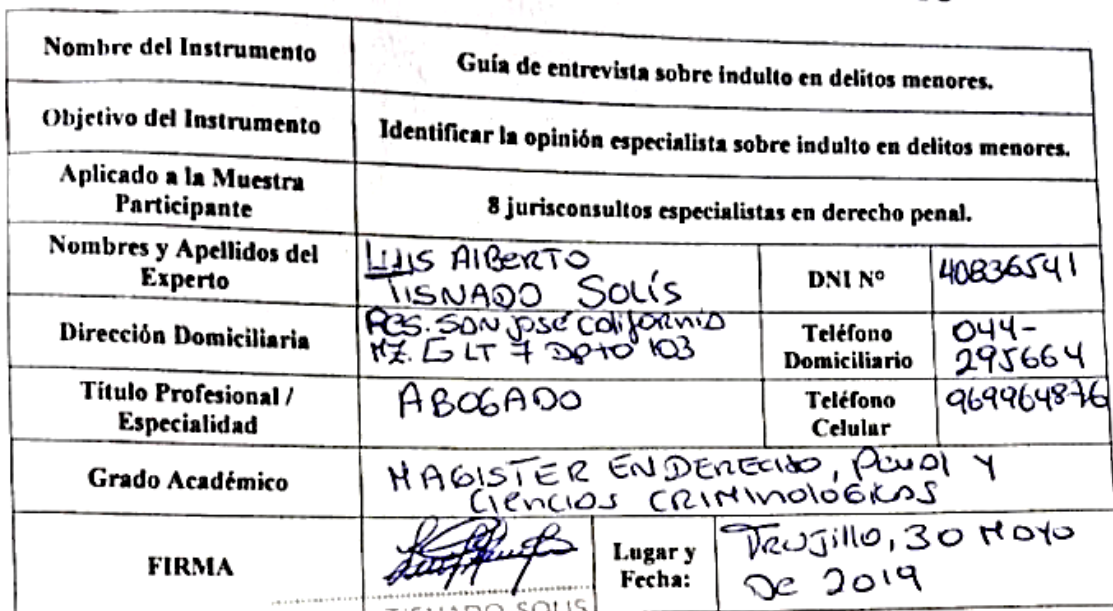 Nombre del Instrumento
Guía de entrevista sobre indulto en delitos menores.
Objetivo del Instrumento
Identificar la opinión especialista sobre indulto en delitos menores.
Aplicado a la Muestra
Participante
8 jurisconsultos especialistas en derecho penal.
Nombres y Apellidos del
Experto
LUIS AlBERTO
TISNADO SOLÍS
DNI Nº
40836541
Dirección Domiciliaria
RES. SAN José California
MZ. G LT 7 Dpto 103
Teléfono
Domiciliario
044-
295664
Título Profesional /
Especialidad
ABOGADO
Teléfono
Celular
969964876
Grado Académico
MAGISTER EN DERECHO, PENAl Y
CIENCIAS CRIMINOlOGICAS
FIRMA
TISNADO SOLIS
Lugar y
Fecha:
TRUJIllO, 30 MAYO
DE 2019